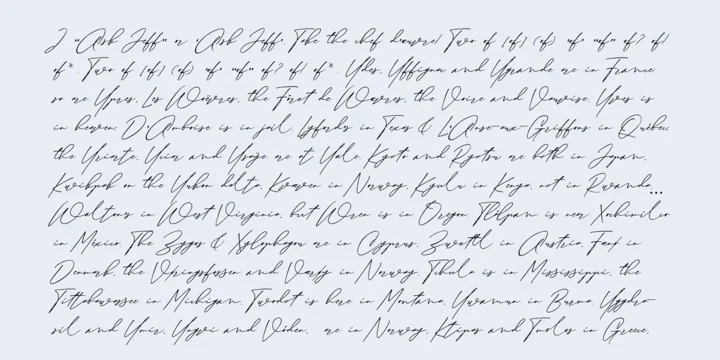 J "Ask Jeff" or 'Ask Jeff'. Take the chef d'œuvre! Two of [of] (of) 'of' "of" of? of!
of*. Two of [of] (of) 'of' "of" of? of! of*. Ydes, Yffignac and Ygrande are in France
so are Ypres, Les Woëvres, the Fôret de Wœvres, the Voire and Vauvise. Yves is
in heaven, D'Amboise is in jail. Lyford's in Texas & L'Anse-aux-Griffons in Québec,
the Yriarte, Yciar and Ysaÿe are at Yale. Kyoto and Ryotsu are both in Japan,
Kwikpak on the Yukon delta, Kvæven in Norway, Kyulu in Kenya, not in Rwanda…
Walton's in West Virginia, but Wren is in Oregon. Tlálpan is near Xochimilco
in México. The Zygos & Xylophagou are in Cyprus, Zwettl in Austria, Fænø in
Denmark, the Vøringsfossen and Værøy in Norway. Tchula is in Mississippi, the
Tittabawassee in Michigan. Twodot is here in Montana, Ywamun in Burma. Yggdra-
sil and Ymir, Yngvi and Vóden, are in Norway, Ktipas and Tmolos in Greece.